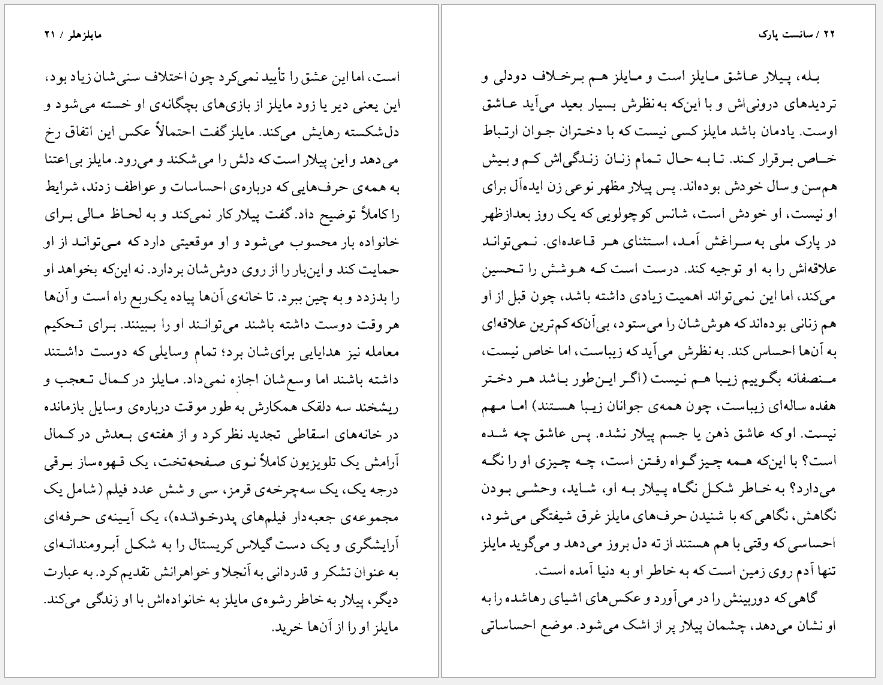 مایلز هلر / ۲۱
است، اما این عشق را تأیید نمی‌کرد چون اختلاف سنی‌شان زیاد بود،
این یعنی دیر یا زود مایلز از بازی‌های بچگانه‌ی او خسته می‌شود و
دل‌شکسته رهایش می‌کند. مایلز گفت احتمالاً عکس این اتفاق رخ
می‌دهد و این پیلار است که دلش را می‌شکند و می‌رود. مایلز بی‌اعتنا
به همه‌ی حرف‌هایی که درباره‌ی احساسات و عواطف زدند، شرایط
را کاملاً توضیح داد. گفت پیلار کار نمی‌کند و به لحاظ مالی برای
خانواده بار محسوب می‌شود و او موقعیتی دارد که می‌تواند از او
حمایت کند و این‌بار را از روی دوش‌شان بردارد. نه این‌که بخواهد او
را بدزدد و به چین ببرد. تا خانه‌ی آن‌ها پیاده یک‌ربع راه است و آن‌ها
هر وقت دوست داشته باشند می‌توانند او را ببینند. برای تحکیم
معامله نیز هدایایی برای‌شان برد؛ تمام وسایلی که دوست داشتند
داشته باشند اما وسع‌شان اجازه نمی‌داد. مایلز در کمال تعجب و
ریشخند سه دلقک همکارش به طور موقت درباره‌ی وسایل بازمانده
در خانه‌های اسقاطی تجدید نظر کرد و از هفته‌ی بعدش در کمال
آرامش یک تلویزیون کاملاً نوی صفحه‌تخت، یک قهوه‌ساز برقی
درجه یک، یک سه‌چرخه‌ی قرمز، سی و شش عدد فیلم (شامل یک
مجموعه‌ی جعبه‌دار فیلم‌های پدرخوانده)، یک آیینه‌ی حرفه‌ای
آرایشگری و یک دست گیلاس کریستال را به شکل آبرومندانه‌ای
به عنوان تشکر و قدردانی به آنجلا و خواهرانش تقدیم کرد. به عبارت
دیگر، پیلار به خاطر رشوه‌ی مایلز به خانواده‌اش با او زندگی می‌کند.
مایلز او را از آن‌ها خرید.
۲۲ / سانست پارک
بله، پیلار عاشق مایلز است و مایلز هم برخلاف دودلی و
تردیدهای درونی‌اش و با این‌که به‌نظرش بسیار بعید می‌آید عاشق
اوست. یادمان باشد مایلز کسی نیست که با دختران جوان ارتباط
خاص برقرار کند. تا به حال تمام زنان زندگی‌اش کم و بیش
هم‌سن و سال خودش بوده‌اند. پس پیلار مظهر نوعی زن ایده‌آل برای
او نیست، او خودش است، شانس کوچولویی که یک روز بعدازظهر
در پارک ملی به سراغش آمد، استثنای هر قاعده‌ای. نمی‌تواند
علاقه‌اش را به او توجیه کند. درست است که هوشش را تحسین
می‌کند، اما این نمی‌تواند اهمیت زیادی داشته باشد، چون قبل از او
هم زنانی بوده‌اند که هوش‌شان را می‌ستود، بی‌آن‌که کم‌ترین علاقه‌ای
به آن‌ها احساس کند. به نظرش می‌آید که زیباست، اما خاص نیست،
منصفانه بگوییم زیبا هم نیست (اگر این‌طور باشد هر دختر
هفده ساله‌ای زیباست، چون همه‌ی جوانان زیبا هستند) اما مهم
نیست. او که عاشق ذهن یا جسم پیلار نشده. پس عاشق چه شده
است؟ با این‌که همه چیز گواه رفتن است، چه چیزی او را نگه
می‌دارد؟ به خاطر شکل نگاه پیلار به او، شاید، وحشی بودن
نگاهش، نگاهی که با شنیدن حرف‌های مایلز غرق شیفتگی می‌شود،
احساسی که وقتی با هم هستند از ته دل بروز می‌دهد و می‌گوید مایلز
تنها آدم روی زمین است که به خاطر او به دنیا آمده است.
گاهی که دوربینش را در می‌آورد و عکس‌های اشیای رهاشده را به
او نشان می‌دهد، چشمان پیلار پر از اشک می‌شود. موضع احساساتی